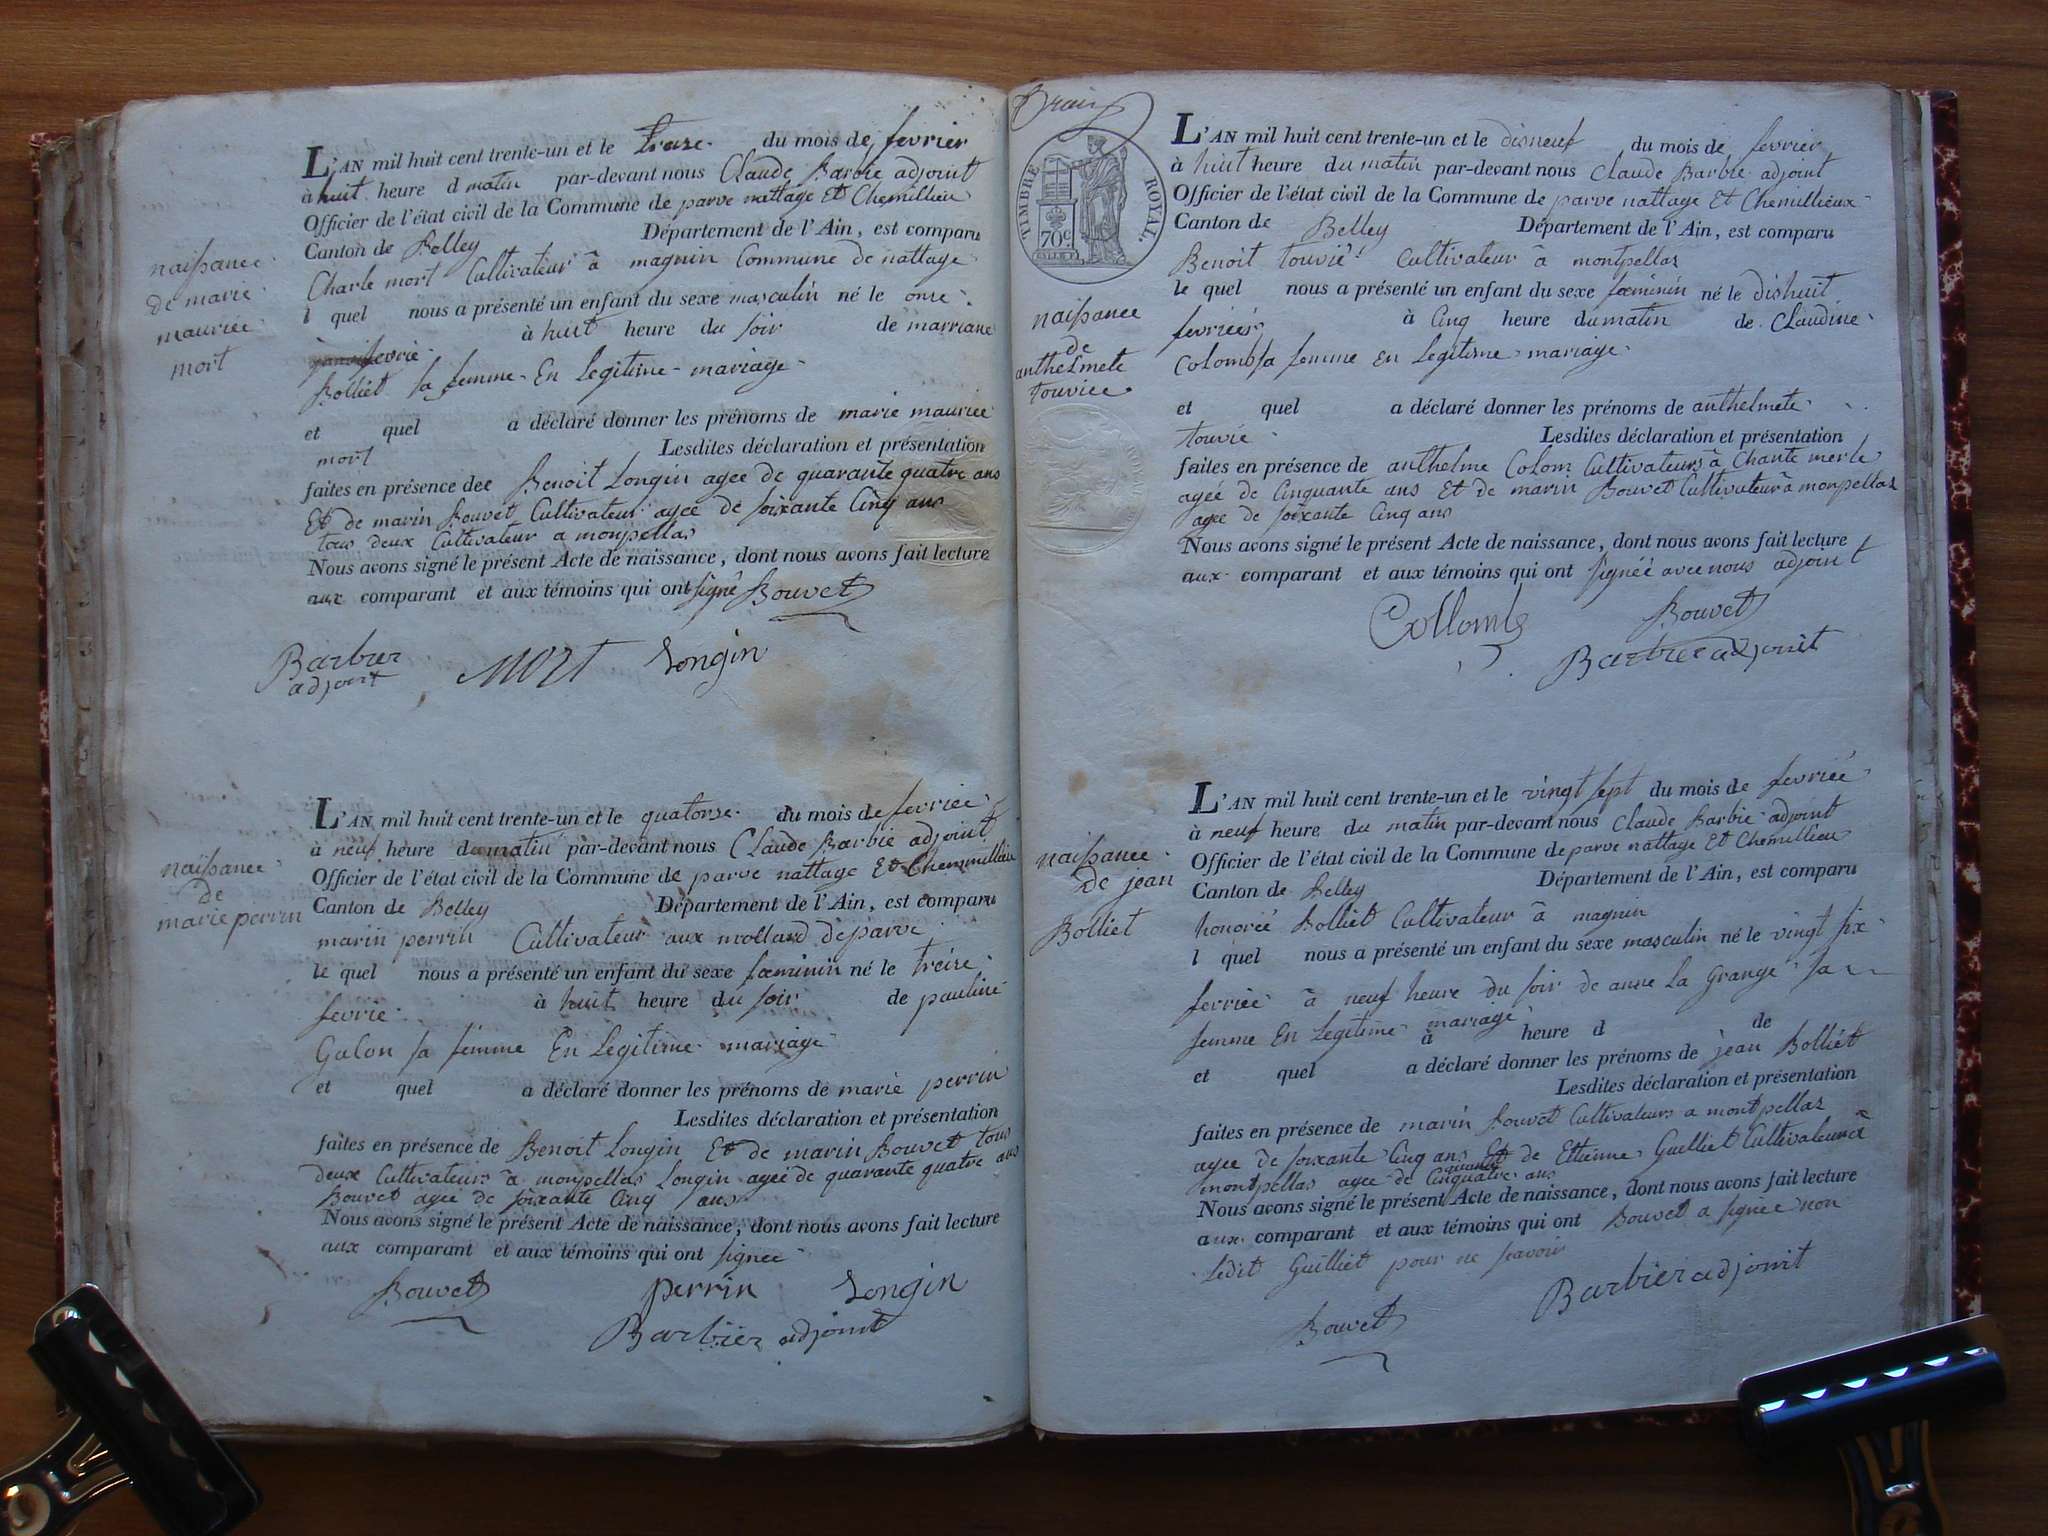 naissance
de marie
mauriée
mort
L'AN mil huit cent trente-un et le treze du mois de fevrier
à huit heure d matin par-devant nous Claude Barbie adjoint
Officier de l'état civil de la Commune de parve nattage Et Chemillieu
Canton de Belley Département de l'Ain, est comparu
Charle mort Cultivateur à magnin Commune de nattage
l quel nous a présenté un enfant du sexe masculin né le onse
fevrie à huit heure du soir de marriane
Bolliet sa femme En Legitime mariage
et quel a déclaré donner les prénoms de marie mauriee
mort Lesdites déclaration et présentation
faites en présence de Benoit Longin agee de quarante quatre ans
Et de marin Bouvet Cultivateur agee de soixante Cinq ans
tous deux Cultivateur a monpellas
Nous avons signé le présent Acte de naissance, dont nous avons fait lecture
aux comparant et aux témoins qui ont signé Bouvet
Barbier
adjoint
MORT Longin
naissance
de
marie perrin
L'AN mil huit cent trente-un et le quatorse du mois de fevriee
à neuf heure du matin par-devant nous Claude Barbie adjoint
Officier de l'état civil de la Commune de parve nattage Et Chemmillieu
Canton de Belley Département de l'Ain, est comparu
marin perrin Cultivateur aux mollard de parve
le quel nous a présenté un enfant du sexe fœminin né le treize
fevrie à huit heure du soir de pauline
Galon sa femme En Legitime mariage
et quel a déclaré donner les prénoms de marie perrin
Lesdites déclaration et présentation
faites en présence de Benoit Longin Et de marin Bouvet tous
deux Cultivateurs à monpellas Longin agee de quarante quatre ans
Bouvet agee de soixante Cinq ans
Nous avons signé le présent Acte de naissance, dont nous avons fait lecture
aux comparant et aux témoins qui ont signee
Bouvet perrin Longin
Barbier adjoint
TIMBRE ROYAL.
70c
naissance
de
anthelmete
touviee
L'AN mil huit cent trente-un et le disneuf du mois de fevrier
à huit heure du matin par-devant nous Claude Barbie adjoint
Officier de l'état civil de la Commune de parve nattage Et Chemillieux
Canton de Belley Département de l'Ain, est comparu
Benoit touvié Cultivateur à montpellas
le quel nous a présenté un enfant du sexe fœminin né le dishuit
fevrieés à Cinq heure du matin de Claudine
Colomb sa femme En Legitime mariage
et quel a déclaré donner les prénoms de anthelmete
touvie Lesdites déclaration et présentation
faites en présence de anthelme Colom Cultivateurs à Chante merle
ageé de Cinquante ans Et de marin Bouvet Cultivateur à monpellas
agee de soixante Cinq ans
Nous avons signé le présent Acte de naissance, dont nous avons fait lecture
aux comparant et aux témoins qui ont signéé avec nous adjoint
Collomb Bouvet
Barbier adjoint
naissance
de jean
Bolliet
L'AN mil huit cent trente-un et le vingt sept du mois de fevrieé
à neuf heure du matin par-devant nous Claude Barbie adjoint
Officier de l'état civil de la Commune de parve nattage Et Chemillieu
Canton de Belley Département de l'Ain, est comparu
honorié Bolliet Cultivateur à magnin
l quel nous a présenté un enfant du sexe masculin né le vingt six
fevrieé à neuf heure du soir de anne La Grange sa
femme En Legitime mariage à heure d de
et quel a déclaré donner les prénoms de jean Bolliét
Lesdites déclaration et présentation
faites en présence de marin Bouvet Cultivateurs a montpellas
agee de soixante Cinq ans Et de Ettienne Guilliet Cultivateur à
montpellas agee de Cinquante quatre ans
Nous avons signé le présent Acte de naissance, dont nous avons fait lecture
aux comparant et aux témoins qui ont Bouvet a signée non
Ledit Guilliet pour ne savoir
Bouvet Barbier adjonit